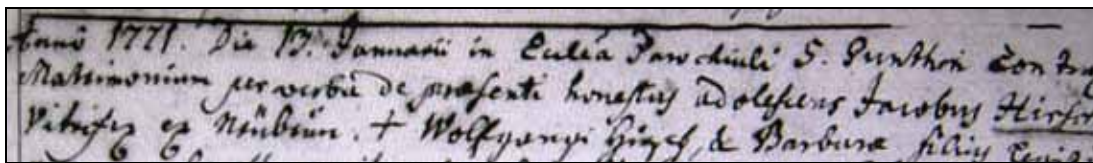 Anno 1771. Die 13. Januarii in Eccl̃ia Parochiali S. Guntheri Contra
Matrimonium per verba de praesenti honestus adolescens Jacobus Hirsch
Vitrifex ex Neübrün. + Wolfgangi Hirsch, & Barbara filius